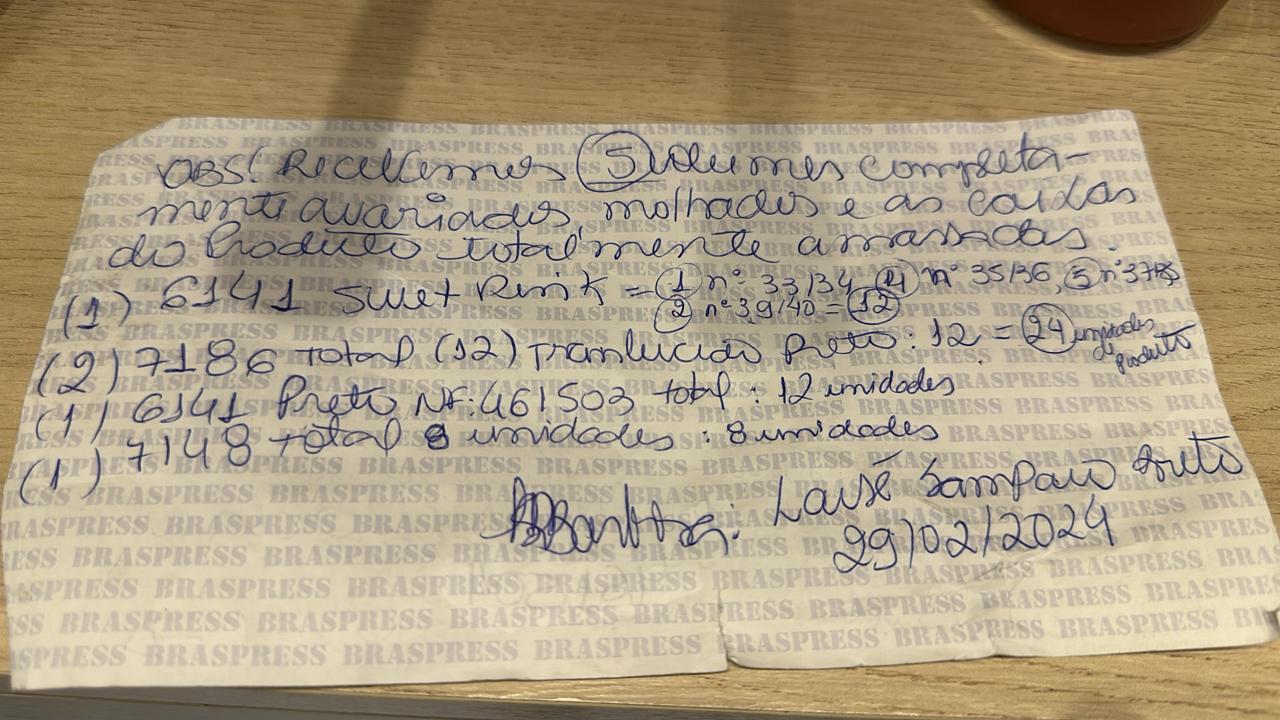 OBS: Recebemos (5) volumes completa-
mente avariados, molhados e as caixas
do Produto totalmente amassadas.
(1) 6141 Swet Pink = (1) nº 33/34, (4) nº 35/36, (5) nº 37/38
(2) nº 39/40 = (12)
(2) 7186 total (12) Tranlucido Preto: 12 = (24) unidades de produto
(1) 6141 Preto NF: 461503 total: 12 unidades
(1) 7148 total 8 unidades: 8 unidades
Laisé Sampaio
29/02/2024
BRASPRESS